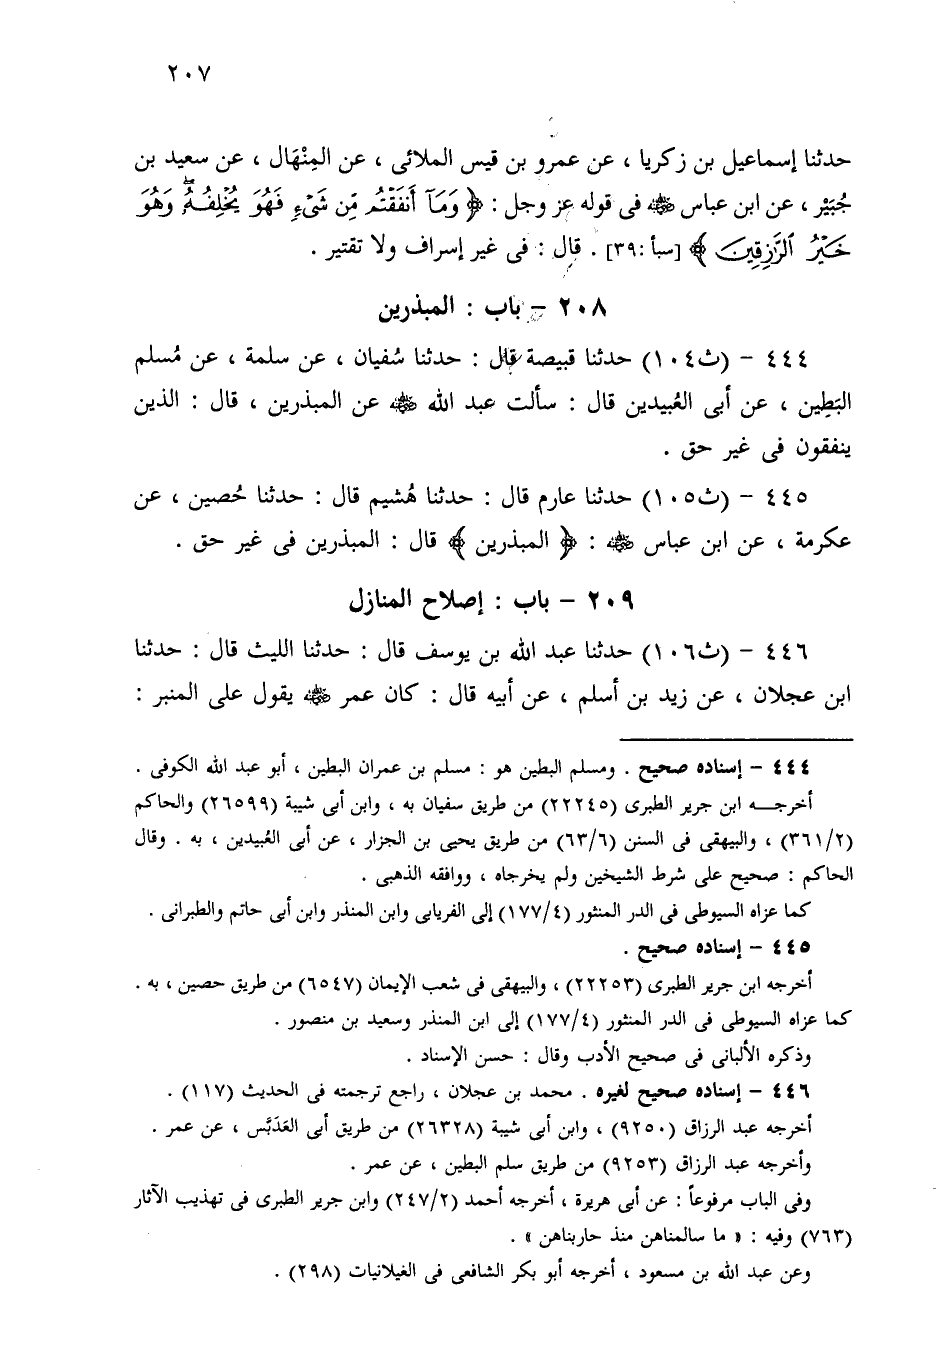 ٢٠٧
حدثنا إسماعيل بن زكريا ، عن عمرو بن قيس الملائى ، عن المِنْهَال ، عن سعيد بن
جُبَيْر ، عن ابن عباس ﷺ فى قوله عز وجل : ﴿ وَمَآ أَنفَقْتُم مِّن شَىْءٍ فَهُوَ يُخْلِفُهُۥۖ وَهُوَ
خَيْرُ ٱلرَّٰزِقِينَ ﴾ [سبأ :٣٩] . قال : فى غير إسراف ولا تقتير .
٢٠٨ - باب : المبذرين
٤٤٤ - (ث١٠٤) حدثنا قبيصة قال : حدثنا سُفيان ، عن سلمة ، عن مُسلم
البَطِين ، عن أبى العُبيدين قال : سألت عبد الله رضي الله عنه عن المبذرين ، قال : الذين
ينفقون فى غير حق .
٤٤٥ - (ث١٠٥) حدثنا عارم قال : حدثنا هُشيم قال : حدثنا حُصين ، عن
عكرمة ، عن ابن عباس رضي الله عنه : ﴿ المبذرين ﴾ قال : المبذرين فى غير حق .
٢٠٩ - باب : إصلاح المنازل
٤٤٦ - (ث١٠٦) حدثنا عبد الله بن يوسف قال : حدثنا الليث قال : حدثنا
ابن عجلان ، عن زيد بن أسلم ، عن أبيه قال : كان عمر رضي الله عنه يقول على المنبر :
٤٤٤ - إسناده صحيح . ومسلم البطين هو : مسلم بن عمران البطين ، أبو عبد الله الكوفى .
أخرجـــه ابن جرير الطبرى (٢٢٢٤٥) من طريق سفيان به ، وابن أبى شيبة (٢٦٥٩٩) والحاكم
(٣٦١/٢) ، والبيهقى فى السنن (٦٣/٦) من طريق يحيى بن الجزار ، عن أبى العُبيدين ، به . وقال
الحاكم : صحيح على شرط الشيخين ولم يخرجاه ، ووافقه الذهبى .
كما عزاه السيوطى فى الدر المنثور (١٧٧/٤) إلى الفريابى وابن المنذر وابن أبى حاتم والطبرانى .
٤٤٥ - إسناده صحيح .
أخرجه ابن جرير الطبرى (٢٢٢٥٣) ، والبيهقى فى شعب الإيمان (٦٥٤٧) من طريق حصين ، به .
كما عزاه السيوطى فى الدر المنثور (١٧٧/٤) إلى ابن المنذر وسعيد بن منصور .
وذكره الألبانى فى صحيح الأدب وقال : حسن الإسناد .
٤٤٦ - إسناده صحيح لغيره . محمد بن عجلان ، راجع ترجمته فى الحديث (١١٧) .
أخرجه عبد الرزاق (٩٢٥٠) ، وابن أبى شيبة (٢٦٣٢٨) من طريق أبى العَدَبَّس ، عن عمر .
وأخرجه عبد الرزاق (٩٢٥٣) من طريق سلم البطين ، عن عمر .
وفى الباب مرفوعاً : عن أبى هريرة ، أخرجه أحمد (٢٤٧/٢) وابن جرير الطبرى فى تهذيب الآثار
(٧٦٣) وفيه : « ما سالمناهن منذ حاربناهن » .
وعن عبد الله بن مسعود ، أخرجه أبو بكر الشافعى فى الغيلانيات (٢٩٨) .